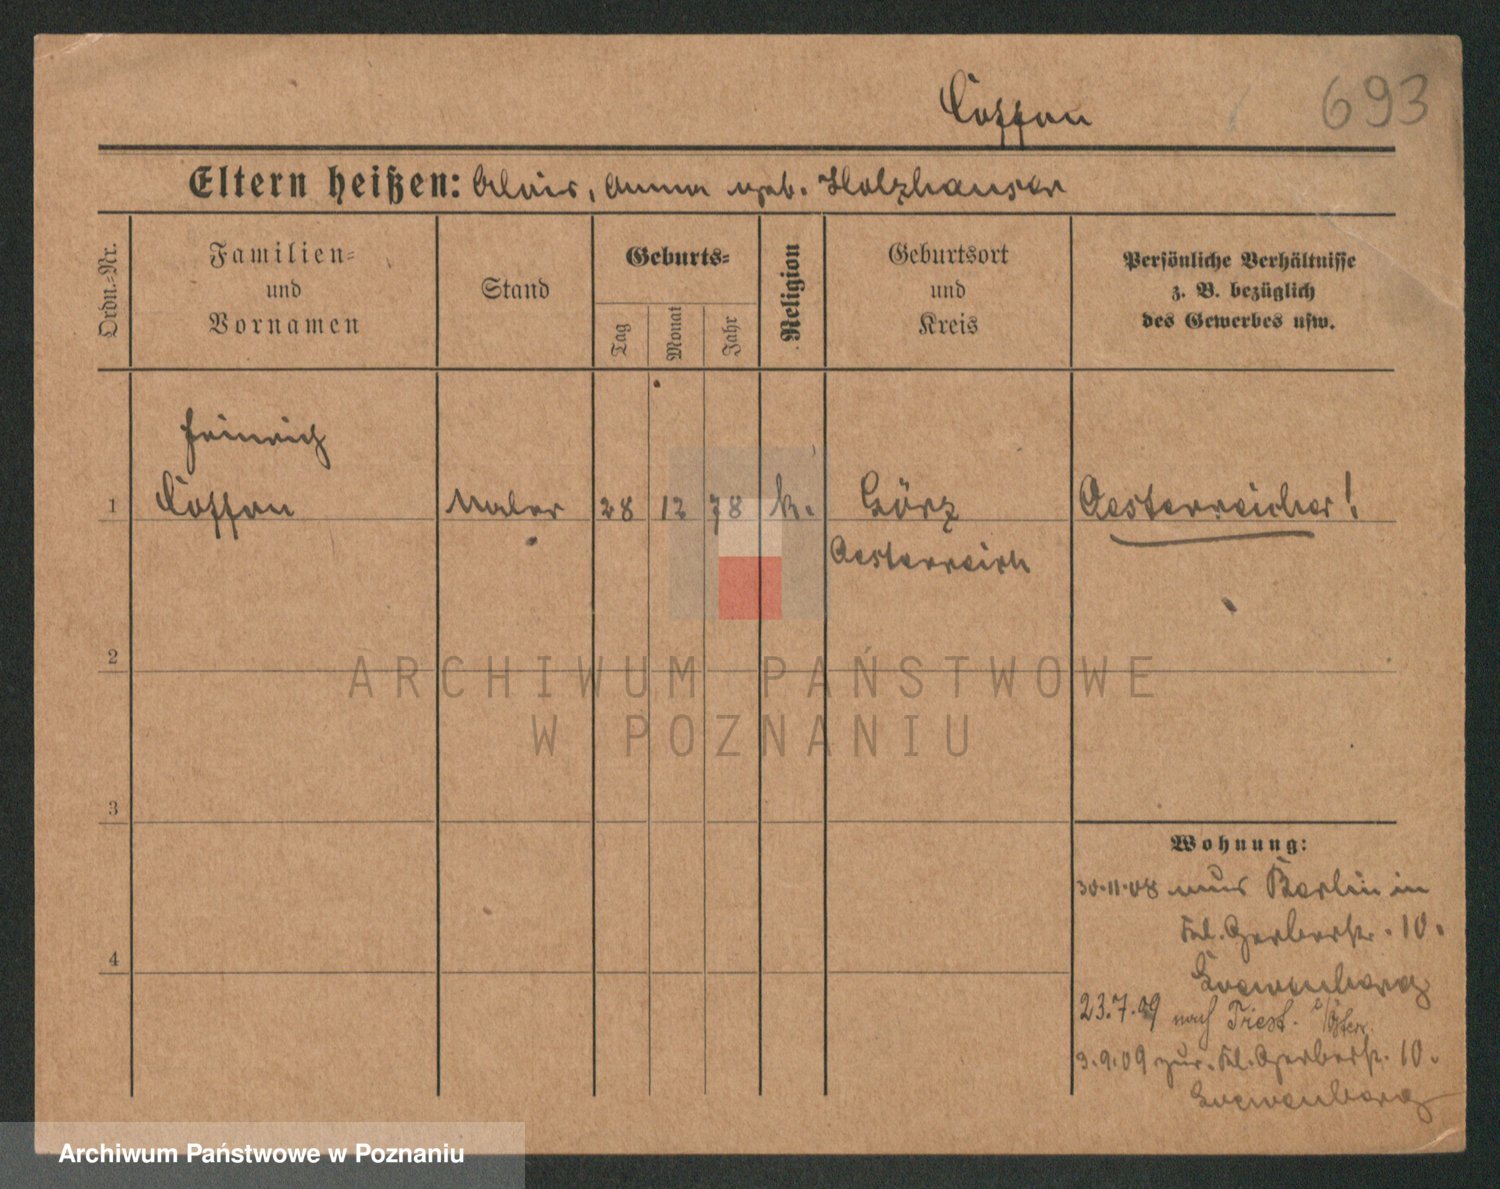 Cossou
693
Eltern heißen: Alois, Anna geb. Holzhauser
Ordn.-Nr.
Familien-
und
Vornamen
Stand
Geburts-
Tag
Monat
Jahr
Religion
Geburtsort
und
Kreis
Persönliche Verhältnisse
z. B. bezüglich
des Gewerbes usw.
Heinrich
1 Cossou Maler 28 12 78 k. Görz Oesterreicher!
Oesterreich
2
3
4
Wohnung:
30.11.08 aus Berlin in
Kl. Gerberstr. 10.
Loewenberg
23.7.09 nach Triest i/Österr.
3.9.09 zur. Kl. Gerberstr. 10.
Loewenberg
ARCHIWUM PAŃSTWOWE
W POZNANIU
Archiwum Państwowe w Poznaniu